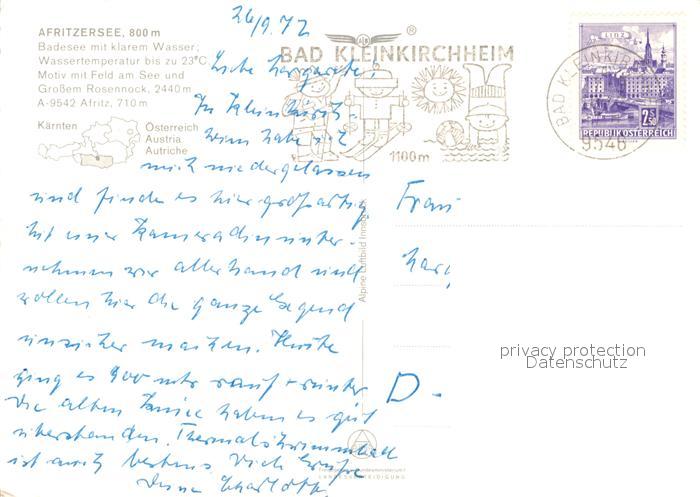 26/9.72
AFRITZERSEE, 800 m
Badesee mit klarem Wasser;
Wassertemperatur bis zu 23°C.
Motiv mit Feld am See und
Großem Rosennock, 2440 m
A-9542 Afritz, 710 m
Kärnten
Österreich
Austria
Autriche
®
BAD KLEINKIRCHHEIM
1100m
LINZ
2.50
REPUBLIK ÖSTERREICH
BAD KLEINKIR
9546
Liebe Margarete!
In Kleinkirch-
heim habe ich
mich niedergelassen
und finde es hier großartig
Mit einer Kameradin unter-
nehmen wir allerhand und
wollen hier die ganze Gegend
unsicher machen. Heute
ging es 900 mtr rauf + runter
Die alten Knie haben es gut
überstanden. Thermalschwimmbad
ist auch bestens Viele Grüße
Deine Charlotte
Alpine Luftbild Innsbruck
Frau
Mar
D-
privacy protection
Datenschutz
LANDESVERTEIDIGUNG